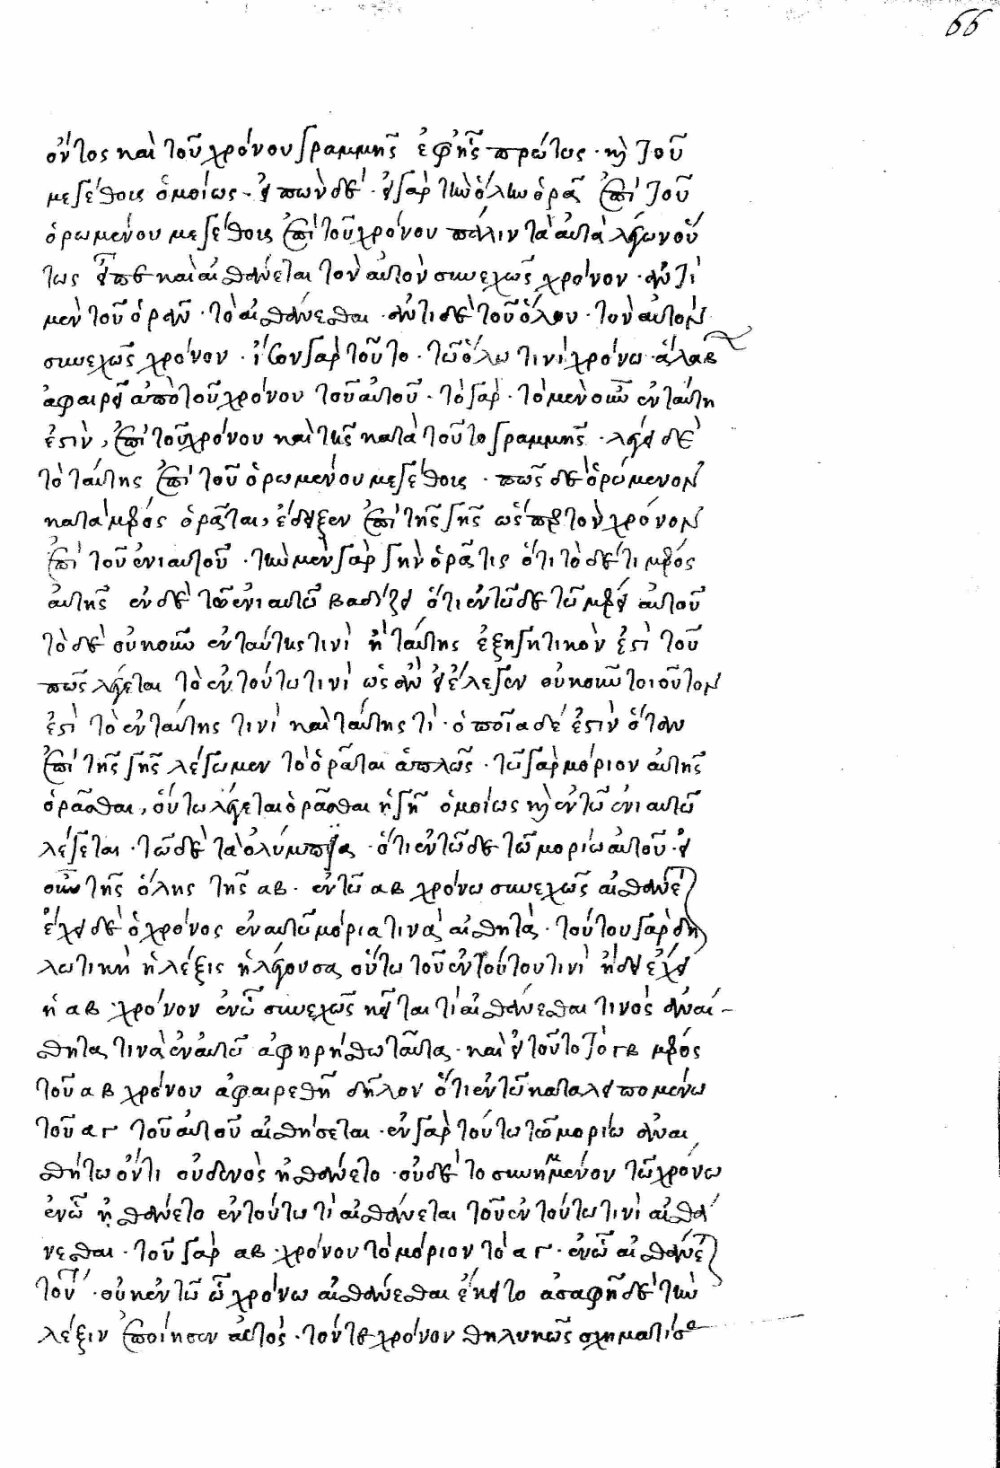 66
ὄντος καὶ τοῦ χρόνου γραμμῆς ἐφῆς πρώτως · καὶ τοῦ
μεγέθους ὁμοίως · εἰπὼν δὲ · εἰ γὰρ τὴν ὅλην ὁρᾶ ἐπὶ τοῦ
ὁρωμένου μεγέθους ἐπὶ τοῦ χρόνου πάλιν τὰ αὐτὰ λέγων οὕ
τως εἶπε καὶ αἰσθάνεται τὸν αὐτὸν συνεχῶς χρόνον · ἀντὶ
μὲν τοῦ ὁρᾶν · τὸ αἰσθάνεσθαι · ἀντὶ δὲ τοῦ ὅλου · τὸν αὐτὸν
συνεχῶς χρόνον · ἴσον γὰρ τοῦτο · τῶ ὅλω τινὶ χρόνω ·
ἀφαιρεῖ ἀπὸ τοῦ χρόνου τοῦ αὐτοῦ · τὸ γὰρ · τὸ μὲν οὖν ἐν ταύτη
ἐστὶν, ἐπὶ τοῦ χρόνου καὶ τῆς κατὰ τοῦτο γραμμῆς · λέγει δὲ
τὸ ταύτης ἐπὶ τοῦ ὁρωμένου μεγέθους · πῶς δὲ ὁρώμενον
κατὰ μέρος ὁρᾶται, ἔδειξεν ἐπὶ τῆς γῆς ὥσπερ τὸν χρόνον
ἐπὶ τοῦ ἐνιαυτοῦ · τὴν μὲν γὰρ γῆν ὁρᾶ τις ὅτι τὸ δέ τι μέρος
αὐτῆς ἐν δὲ τῶ ἐνιαυτῶ βαδίζει ὅτι ἐν τῶδε τῶ μέρει αὐτοῦ
τὸ δὲ οὐκοῦν ἐν ταύτης τινὶ ἢ ταύτης ἐξηγητικόν ἐστι τοῦ
πῶς λέγεται τὸ ἐν τούτω τινὶ ὡς ἂν εἰ ἔλεγεν οὐκοῦν τοιοῦτον
ἐστὶ τὸ ἐν ταύτης τινὶ καὶ ταύτης τί · ὁποῖα δέ ἐστιν ὅταν
ἐπὶ τῆς γῆς λέγωμεν τὸ ὁρᾶται ἁπλῶς · τῶ γὰρ μόριον αὐτῆς
ὁρᾶσθαι, οὕτω λέγεται ὁρᾶσθαι ἡ γῆ ὁμοίως καὶ ἐν τῶ ἐνιαυτῶ
λέγεται · τῶδε τὰ ὀλύμπια · ὅτι ἐν τῶδε τῶ μορίω αὐτοῦ · εἰ
οὖν τῆς ὅλης τῆς αβ · ἐν τῶ αβ χρόνω συνεχῶς αἰσθάνε
ἔχει δὲ ὁ χρόνος ἐν αὐτῶ μόριά τινα αἰσθητά · τούτου γὰρ δη
λωτικὴ ἡ λέξις ἡ λέγουσα οὕτω τοῦ ἐν τούτου τινὶ ἤδη ἔχει
ἡ αβ · χρόνον ἐν ὧ συνεχῶς κεῖται τὶ αἰσθάνεσθαι τινὸς ἀναι-
σθητά τινα ἐν αὐτῶ ἀφηρήσθω ταῦτα · καὶ εἰ τοῦτο τὸ γβ μέρος
τοῦ αβ χρόνου ἀφαιρεθῆ δῆλον ὅτι ἐν τῶ καταλειπομένω
τοῦ αγ τοῦ αὐτοῦ αἰσθήσεται · ἐν γὰρ τούτω τῶ μορίω ἀναι
σθήτω ὄντι οὐδενὸς ἠσθάνετο · οὐδὲ τὸ συνημμένον τῶ χρόνω
ἐν ὧ ἠσθάνετο ἐν τούτω τὶ αἰσθάνεται τοῦ ἐν τούτω τινὶ αἰσθά
νεσθαι · τοῦ γὰρ αβ · χρόνου τὸ μόριον τὸ αγ · ἐν ὧ αἰσθάνε
τοῦ · οὐκ ἐν τῶ ὧ χρόνω αἰσθάνεσθαι ἔκειτο ἀσαφῆ δὲ τὴν
λέξιν ἐποίησεν αὐτὸς · τόν τε χρόνον θηλυκῶς σχηματίσα